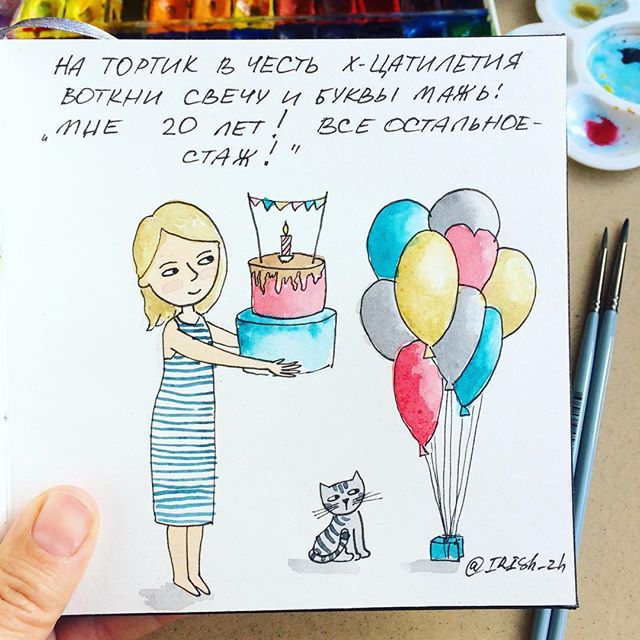 НА ТОРТИК В ЧЕСТЬ Х-ЦАТИЛЕТИЯ
ВОТКНИ СВЕЧУ И БУКВЫ МАЖЬ:
"МНЕ 20 ЛЕТ! ВСЕ ОСТАЛЬНОЕ-
СТАЖ!"
@IRISh_zh